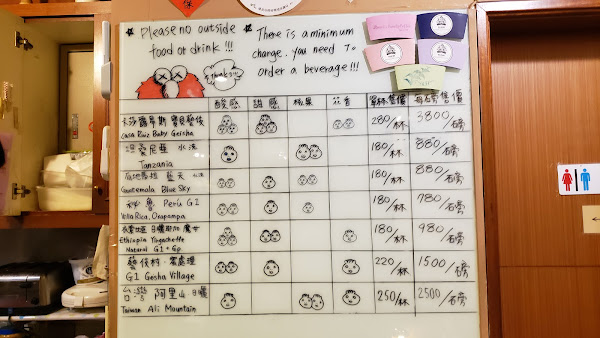 * Please no outside
food or drink !!!
Thanks!!!
* There is a minimum
charge. you need To
order a beverage!!!
酸感 甜感 核果 花香 單杯售價 每磅售價
卡莎露易斯 寶貝藝伎 280/杯 3800/磅
Casa Ruiz Baby Geisha
坦桑尼亞 水洗 180/杯 880/磅
Tanzania
瓜地馬拉 藍天 水洗 180/杯 880/磅
Guatemala Blue Sky
秘魯 Perú G1 180/杯 780/磅
Villa Rica, Oxapampa
180/杯 980/磅
Ethiopia Yirgacheffe
Natural G1 + Gp
藝伎村 蜜處理 220/杯 1500/磅
G1 Gesha Village
台灣 阿里山 日曬 250/杯 2500/磅
Taiwan Ali Mountain